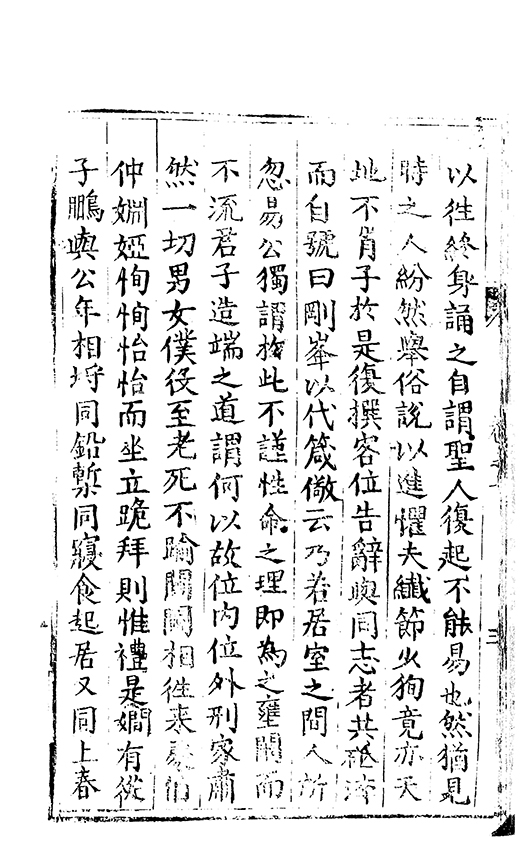 以往終身誦之自謂聖人復起不能易也然猶見
時之人紛然舉俗說以進懼夫纖節少狥竟亦天
地不肖子於是復撰客位告辭與同志者共砥
而自號曰剛峯以代箴儆云乃若居室之間人所
忽易公獨謂於此不謹性命之理即為之壅閼而
不流君子造端之道謂何以故位內位外刑家肅
然一切男女僕役至老死不踰閫閾相徃來
仲姻婭恂恂怡怡而坐立跪拜則惟禮是嫺有從
子鵬與公年相埒同鉛槧同寢食起居又同上春
三